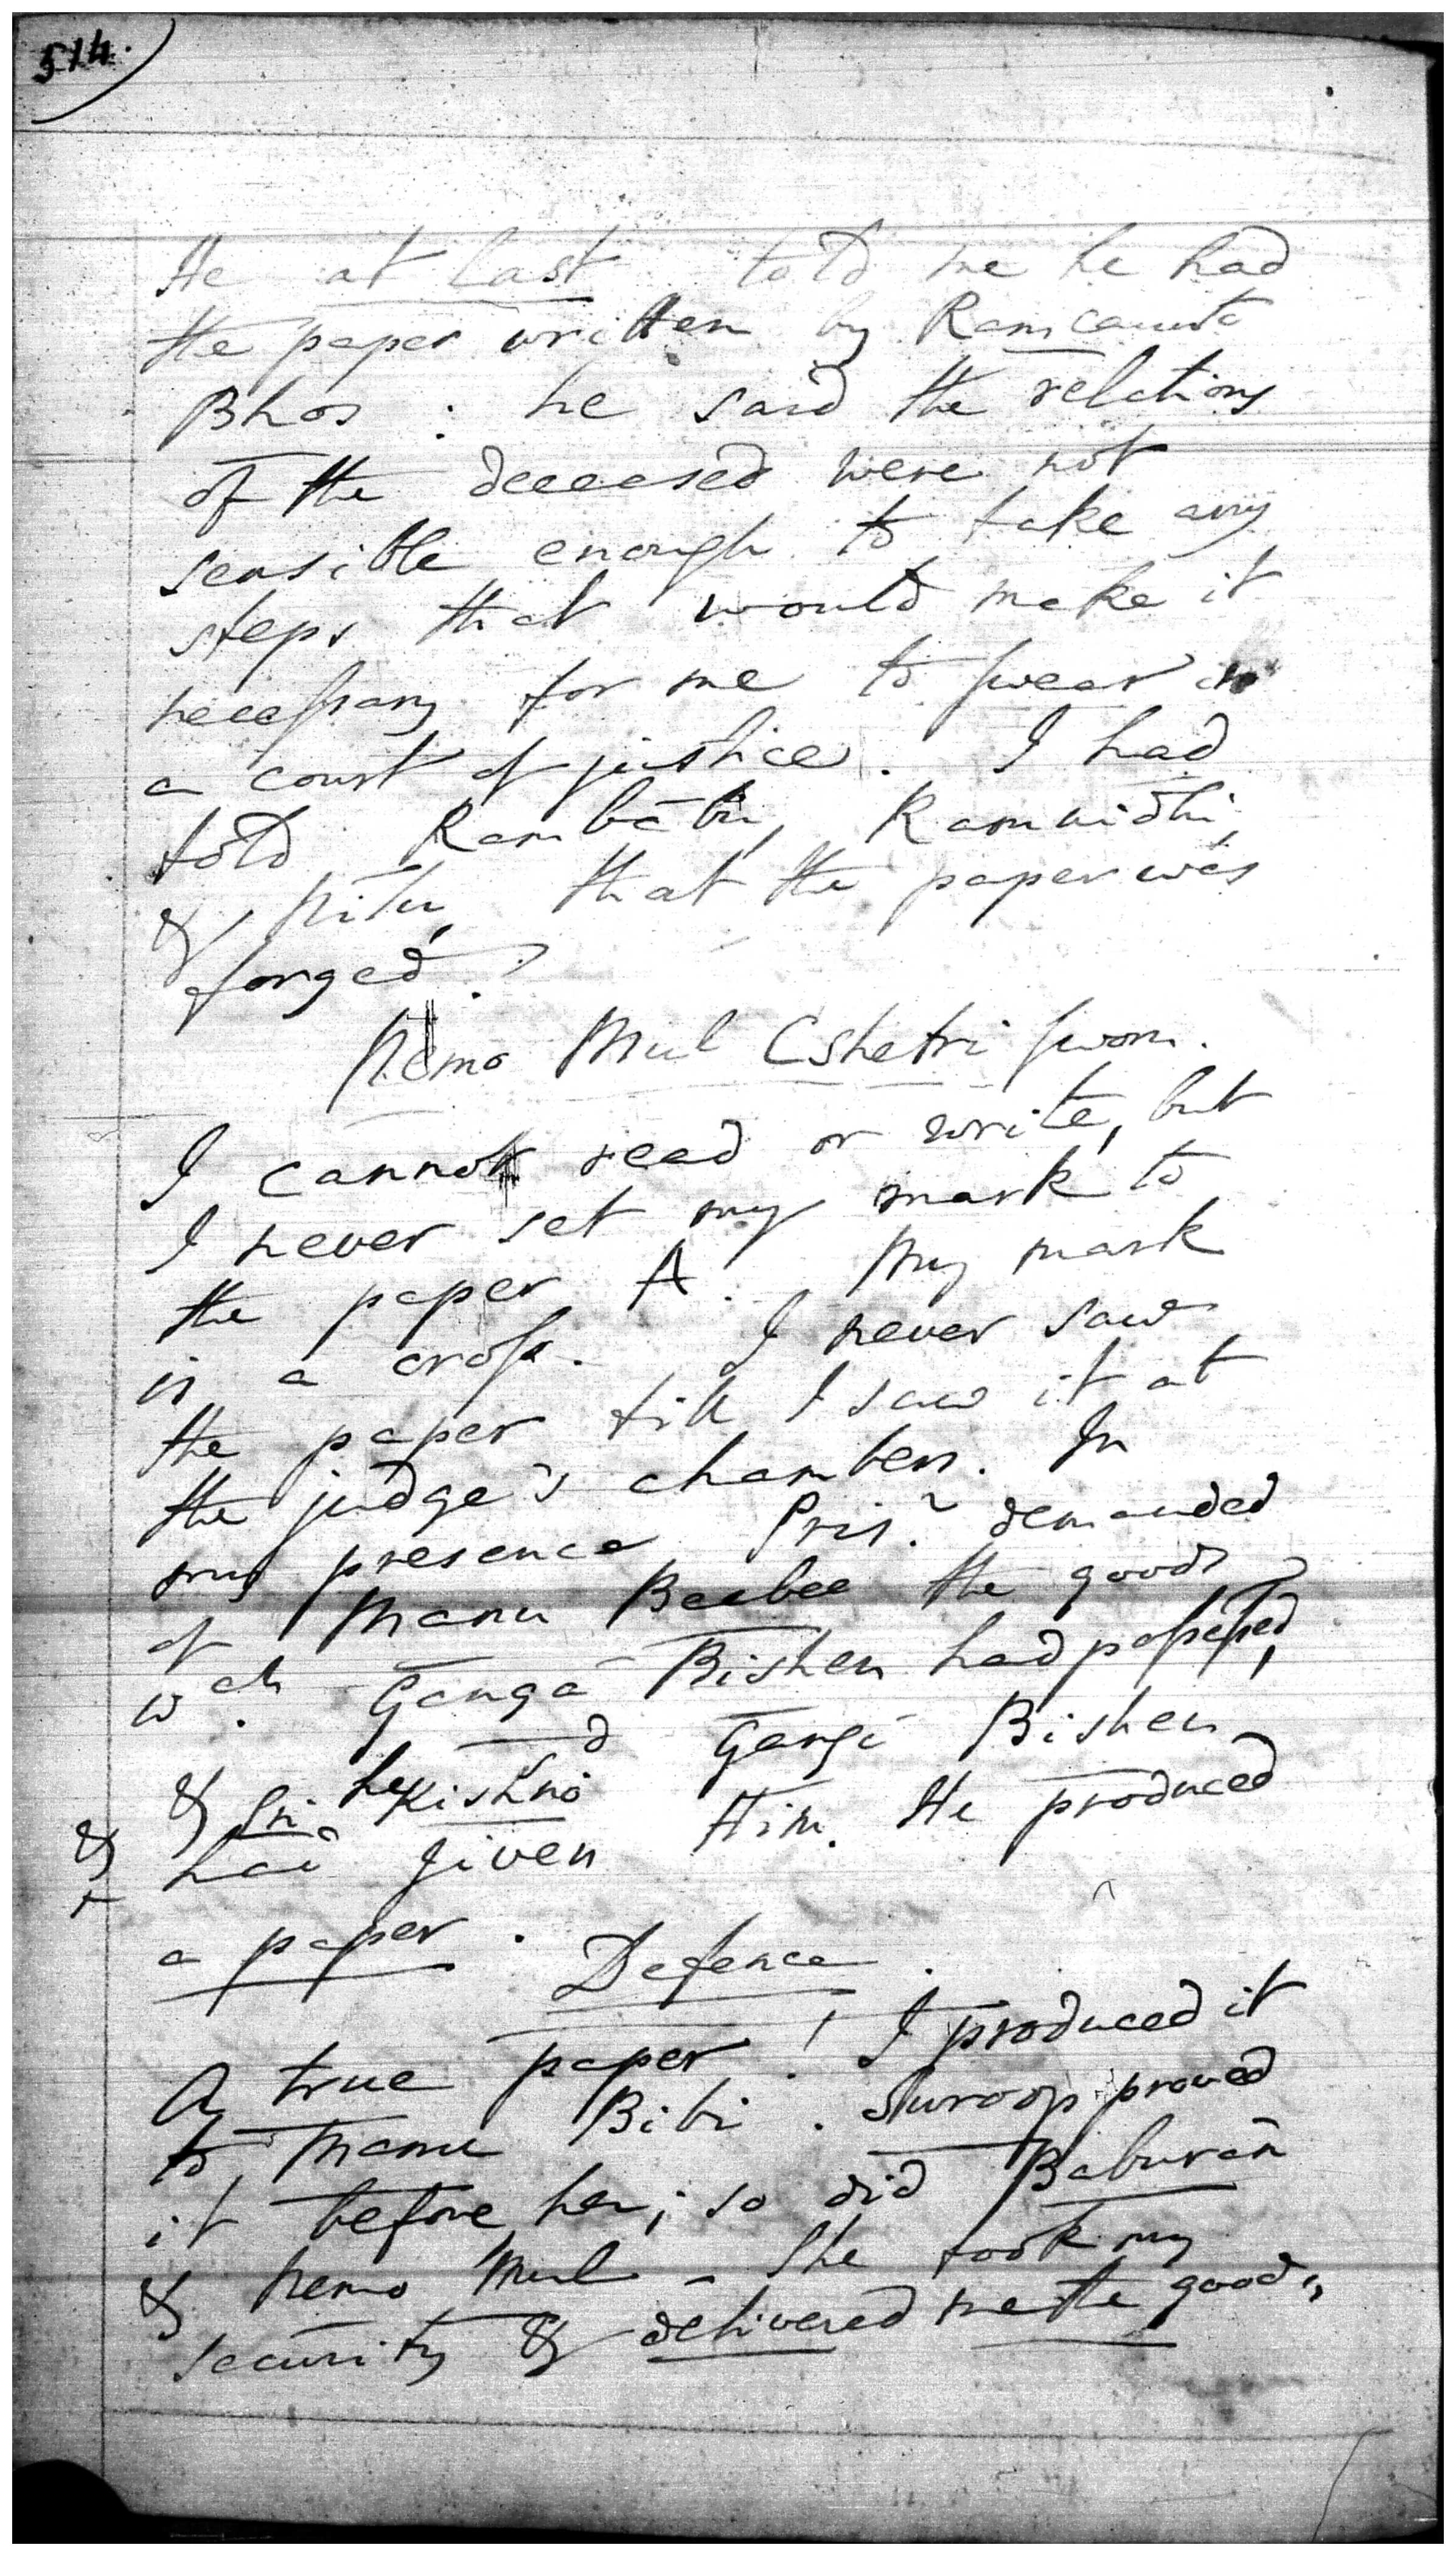 514.
He at last told me he had
the paper written by Ramcaunta
Bhos : he said the relations
of the deceased were not
sensible enough to take any
steps that would make it
necessary for me to swear in
a court of justice. I had
told Rambābu, Ramnidhi,
& Nilu, that the paper was
forged.
Nemo Mul Cshetri sworn.
I cannot read or write, but
I never set my mark to
the paper A. My mark
is a cross. I never saw
the paper till I saw it at
the judge's chambers. In
my presence Prisr. demanded
of Manu Beebee the goods
wch. Gangā Bishen had possessed,
& Sri Kishno Gangā Bishen
& he had given Him. He produced
a paper.
Defence.
A true paper! I produced it
to Manu Bibi. Suroop proved
it before her; so did Baburān
& Nemo Mul - She took my
security & delivered me the goods,